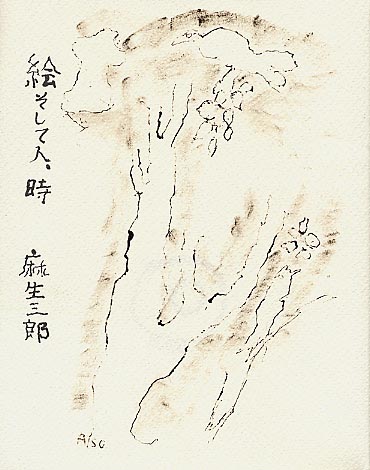 絵そして人、時
麻生三郎